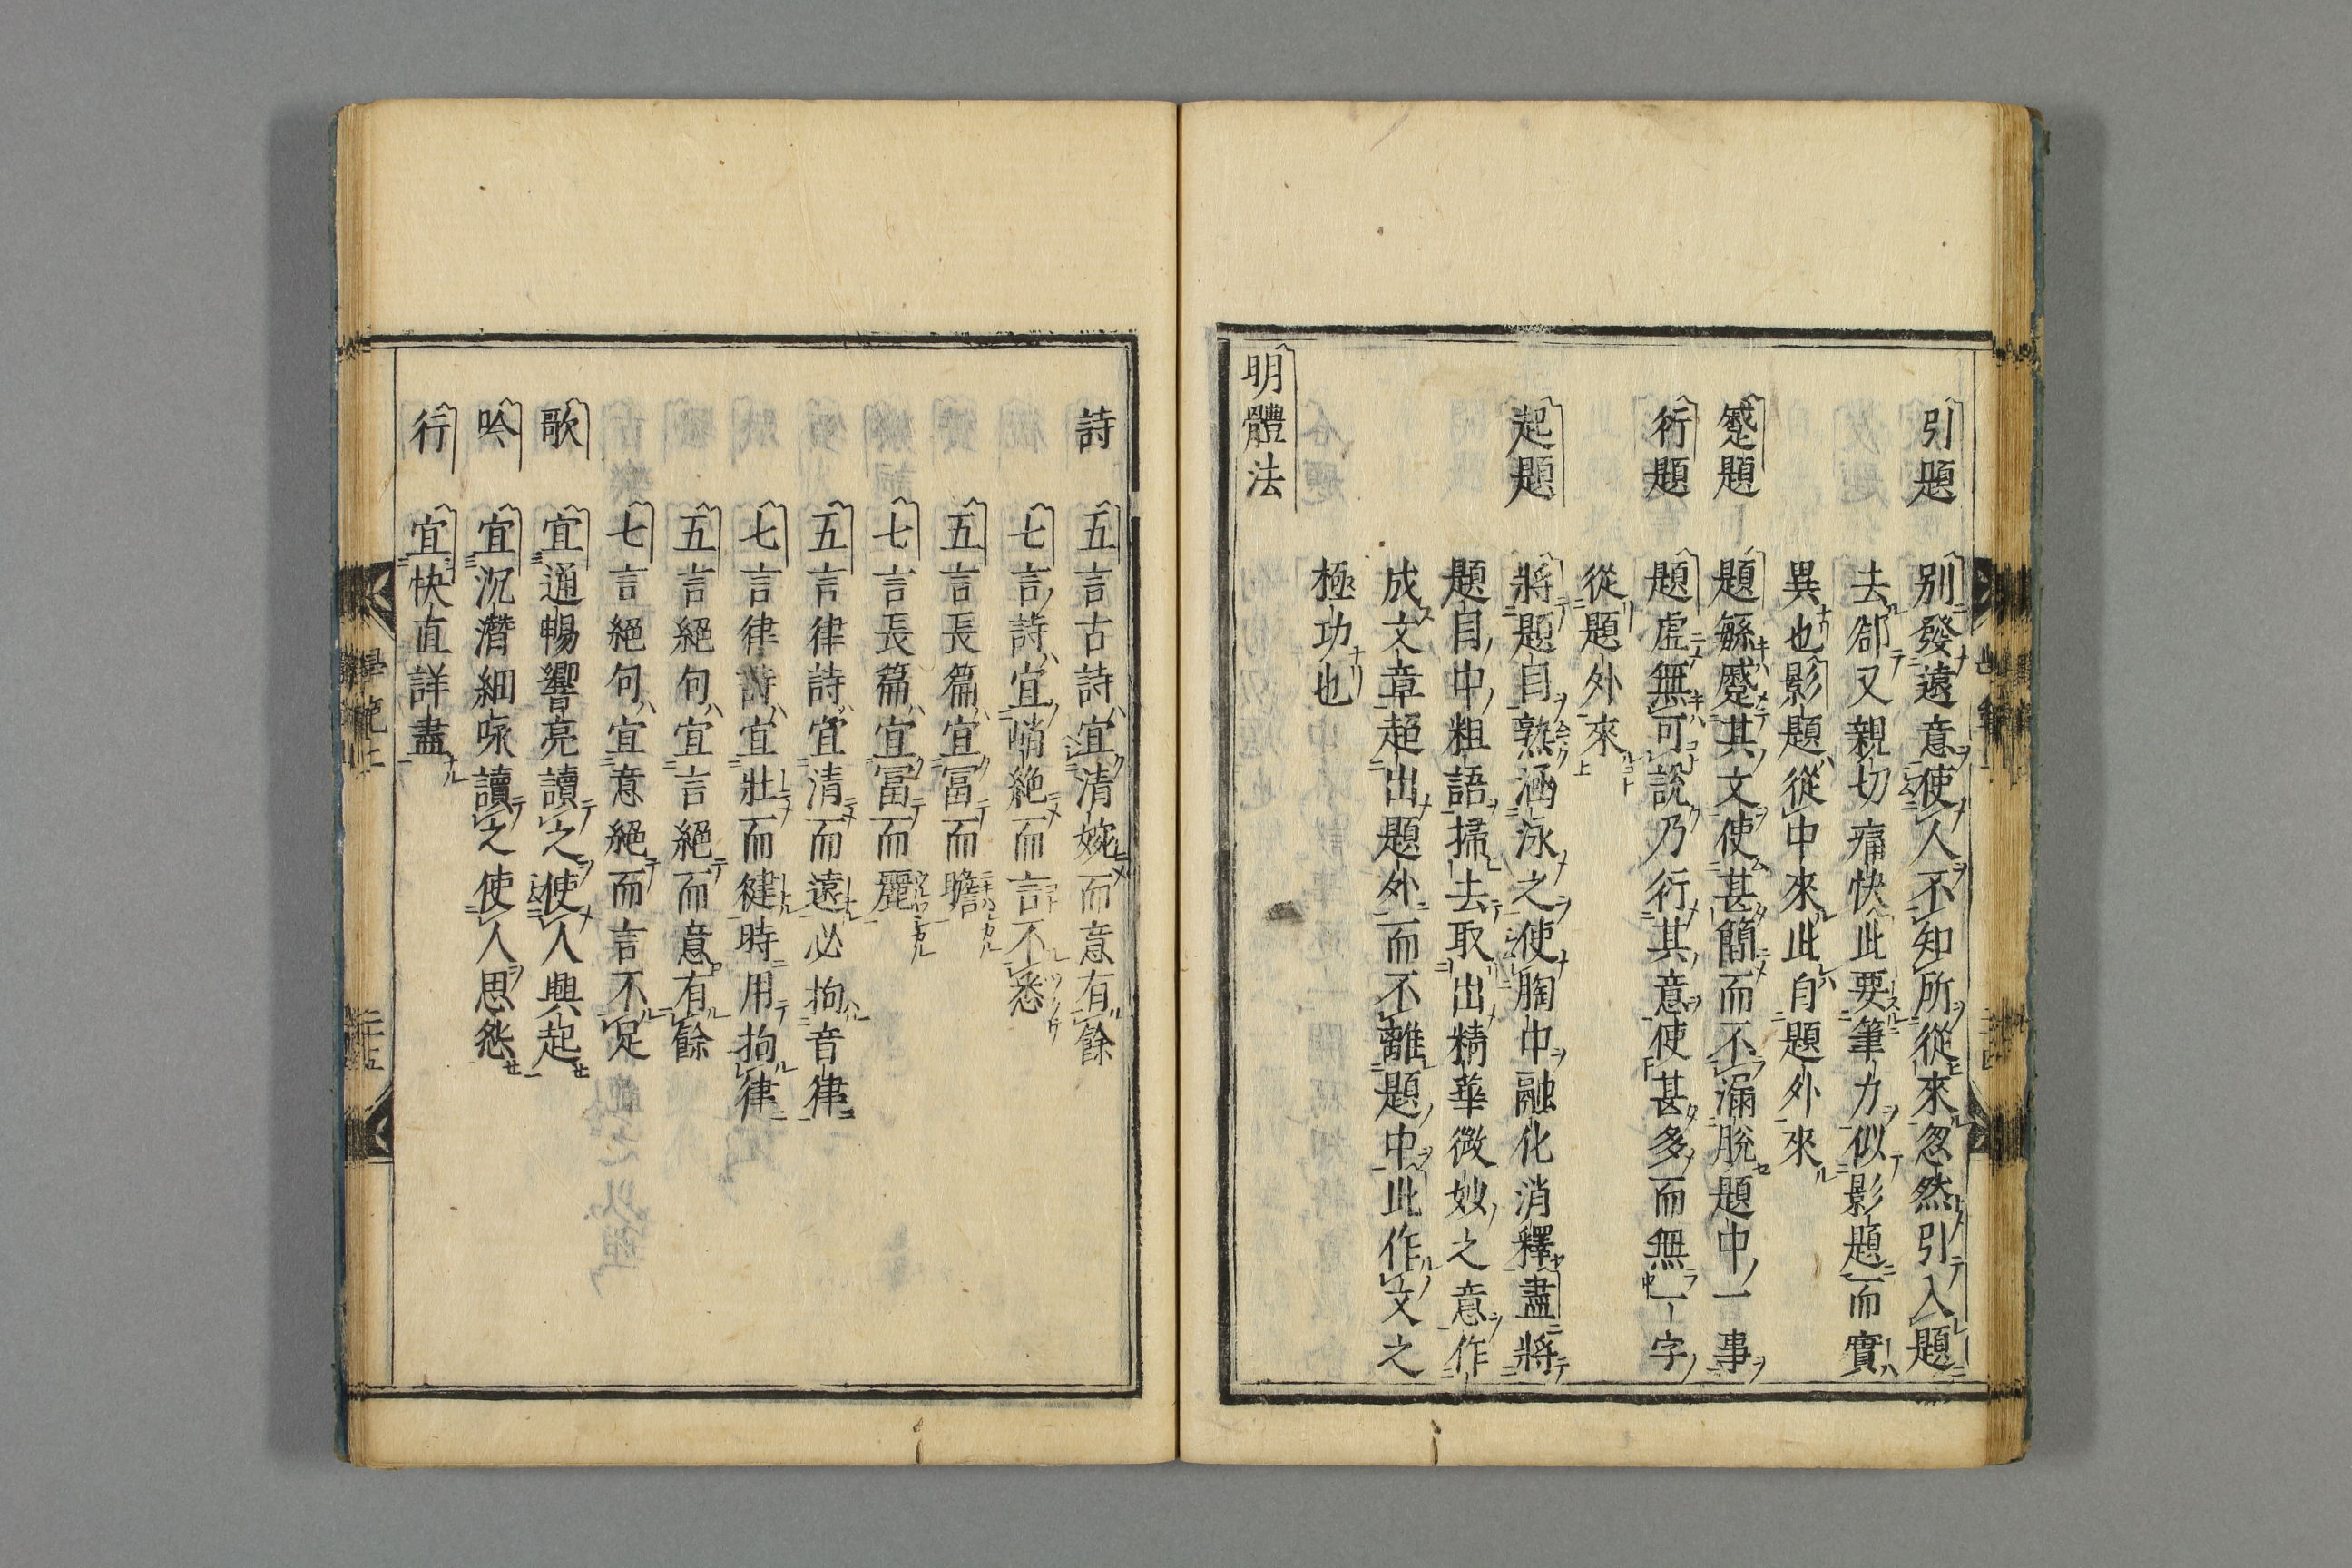 引題 別發遠意使人不知所從來忽然引入題
去郤又親切痛快此要筆力似影題而實
異也影題從中來此自題外來
蹙題 題繁蹙其文使甚簡而不漏脫題中一事
衍題 題虛無可說乃衍其意使甚多而無一字
從題外來
起題 將題自熟涵泳之使胸中融化消釋盡將
題目中粗語掃去取出精華微妙之意作
成文章超出題外而不離題中此作文之
極功也
明體法
詩 五言古詩宜清婉而意有餘
七言詩宜峭絶而言不悉
五言長篇宜冨而贍
七言長篇宜冨而麗
五言律詩宜清而遠必拘音律
七言律詩宜壯而健時用拗律
五言絕句宜言絕而意有餘
七言絕句宜意絕而言不足
歌 宜通暢響亮讀之使人興起
吟 宜沉潛細咏讀之使人思怨
行 宜快直詳盡
學範上 二十五